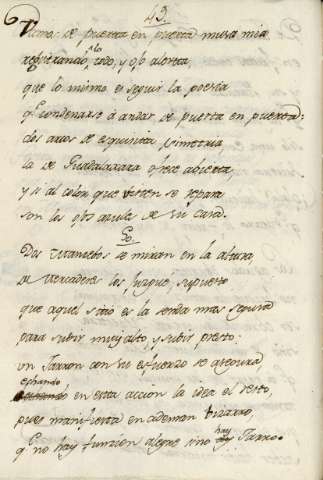 49.
Vamos de puerta en puerta musa mia
registrandolo todo, y ojo alerta,
que lo mismo es seguir la poesia
qe. condenarse á andar de puerta en puerta:
dos arcos de esquisita simetria
la de Guadalaxara ofrece abierta,
y si al color que visten se repara
son los ojos azules de su cara.
50.
Dos se miran en la altura
su verdaderos los juzgue supuesto
que aquel sitio es la senda mas segura
para subir muy alto, y subir presto:
un Jarron con su esfuerzo se asegura,
echando en esta accion la idea el resto,
pues manifiesta en ademan bizarro,
qe. no hay funcion alegre sino hay Jarro.